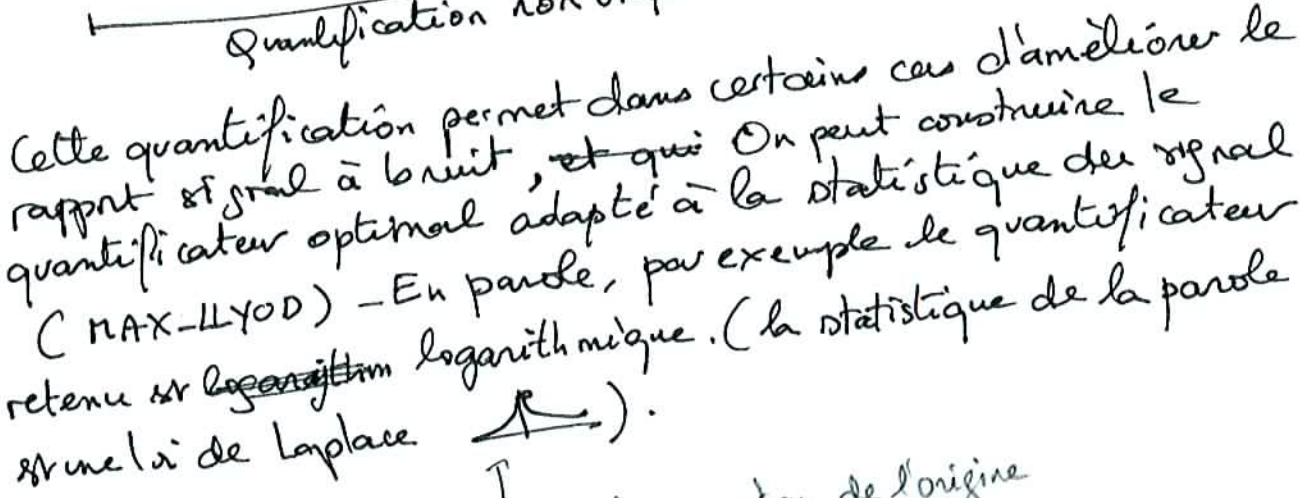 Quantification non
Cette quantification permet dans certains cas d'améliorer le
rapport signal à bruit, et qui On peut construire le
quantificateur optimal adapté à la statistique du signal
( MAX-LLYOD ) - En parole, par exemple le quantificateur
retenu est logarithm logarithmique. ( la statistique de la parole
est une loi de Laplace ).
de l'origine